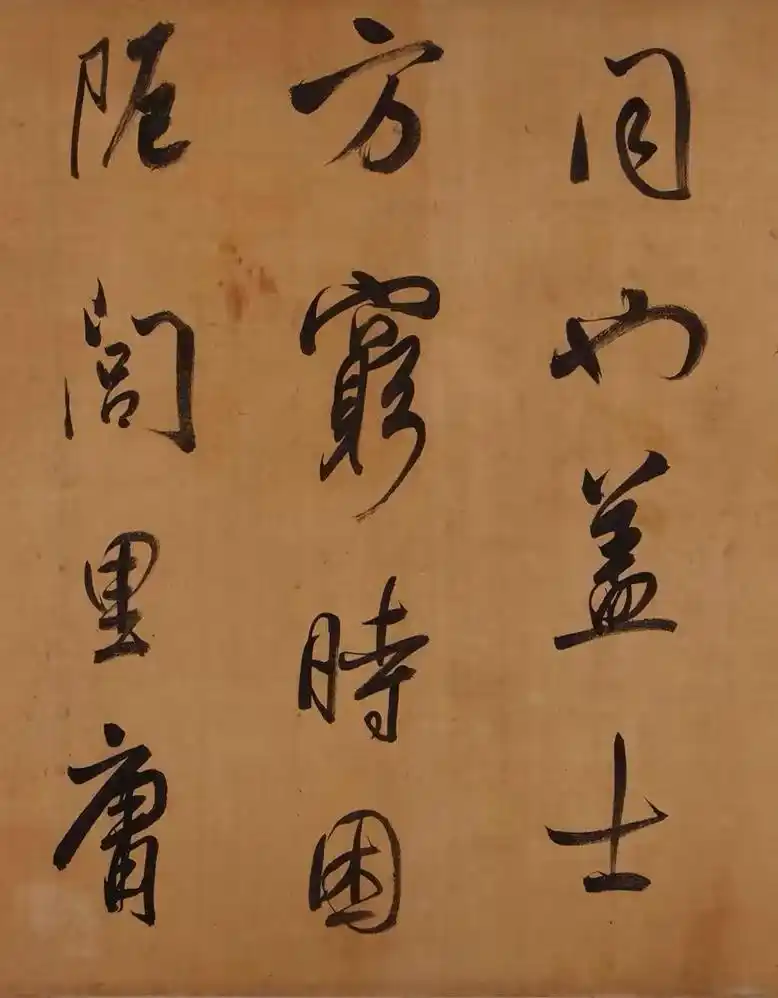 同也蓋士
方窮時困
阨閭里庸